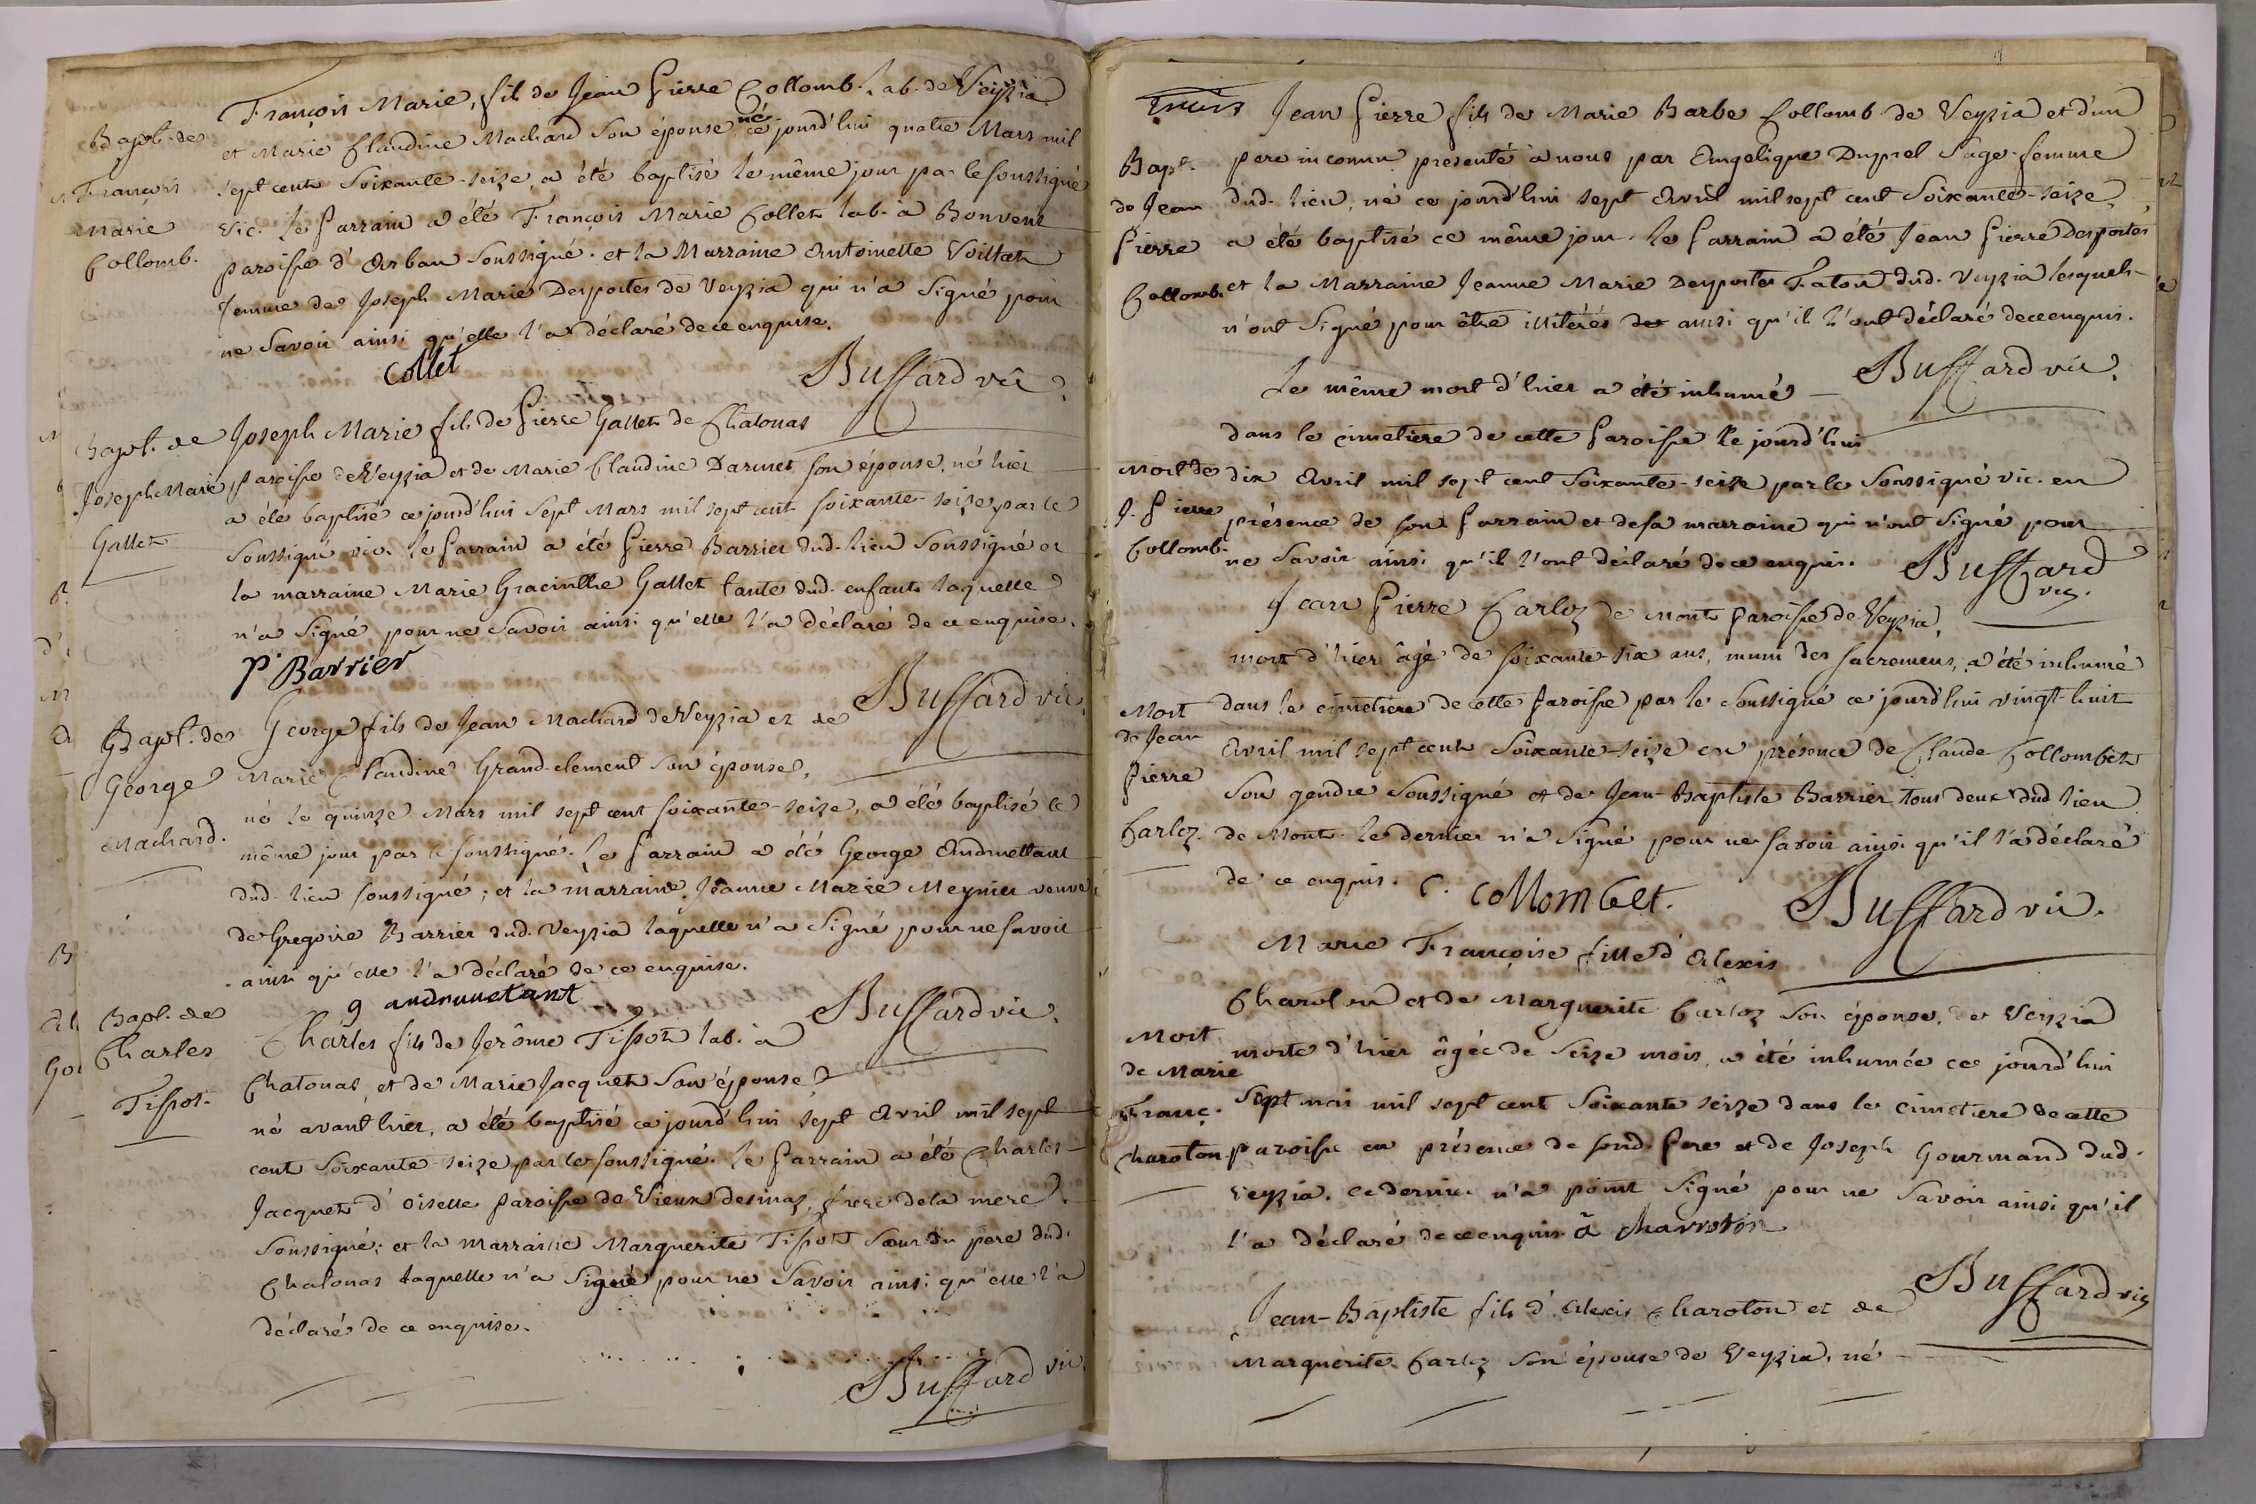 François Marie, fils de Jean Pierre Collomb. Lab. de Veyzia
Bapt. de
François
Marie
Collomb.
et Marie Claudine Machard son épouse, né ce jourd'hui quatre Mars mil
sept cents soixante-seize, a été baptisé le même jour par le soussigné
vic. le Parrain a été François Marie Collet lab. à Bonvent
paroisse d'Arban soussigné. et la Marraine Antoinette
femme de Joseph Marie Desportes de Veyzia qui n'a signé pour
ne savoir ainsi qu'elle l'a déclaré de ce enquise.
Collet
Buffard vic.
Bapt. de
Joseph Marie
Gallet
Joseph Marie fils de Pierre Gallet de Chatonas
paroisse de Veyzia et de Marie Claudine Darmet son épouse, né hier
a été baptisé ce jourd'hui sept Mars mil sept cent soixante-seize par le
soussigné vic. le Parrain a été Pierre Barrier dud. lieu soussigné et
la marraine Marie Gracinthe Gallet tante dud. enfant laquelle
n'a signé pour ne savoir ainsi qu'elle l'a déclaré de ce enquise.
P. Barrier
Buffard vic.
Bapt. de
George
Machard.
George fils de Jean Machard de Veyzia et de
Marie Claudine Grand-clement son épouse,
né le quinze Mars mil sept cent soixante-seize, a été baptisé le
même jour par le soussigné. Le Parrain a été George Andruettant
dud. lieu soussigné; et la marraine Jeanne Marie Meynier veuve
de Gregoire Barrier dud. Veyzia laquelle n'a signé pour ne savoir
ainsi qu'elle l'a déclaré de ce enquise.
g andruuetant
Buffard vic.
Bapt. de
Charles
Tissot.
Charles fils de Jerôme Tissot lab. à
Chatonas et de Marie Jacquet son épouse
né avant hier, a été baptisé ce jourd'hui sept Avril mil sept
cent soixante-seize par le soussigné. le Parrain a été Charles
Jacquet d'Oiselle Paroisse de Vieux desinaz, frere de la mere
soussigné; et la marraine Marguerite Tissot sœur du père dud.
Chatonas laquelle n'a signé pour ne savoir ainsi qu'elle l'a
déclaré de ce enquise.
Buffard vic.
Jean Pierre fils de Marie Barbe Collomb de Veyzia et d'un
Bapt.
de Jean
Pierre
Collomb.
pere inconnu presenté à nous par Angelique Duprel Sage-femme
dud. lieu, né ce jourd'hui sept Avril mil sept cent soixante-seize,
a été baptisé ce même jour. le Parrain a été Jean Pierre Desportes
et la Marraine Jeanne Marie Desportes Faton dud. Veyzia lesquels
n'ont signé pour être illiterés de ainsi qu'il l'ont déclaré de ce enquis.
Buffard vic.
Mort de
J. Pierre
Collomb.
Le même mort d'hier a été inhumé
dans le cimetiere de cette Paroisse le jourd'hui
dix Avril mil sept cent soixante-seize par le soussigné vic. en
présence de son Parrain et de sa marraine qui n'ont signé pour
ne savoir ainsi qu'il l'ont déclaré de ce enquis.
Buffard
vic.
Mort
de Jean
Pierre
Carloz.
Jean Pierre Carloz de Mont Paroisse de Veyzia,
mort d'hier âgé de soixante-six ans, muni des sacremens, a été inhumé
dans le cimetiere de cette Paroisse par le soussigné ce jourd'hui vingt-huit
Avril mil sept cent soixante-seize en présence de Claude Collombet
son gendre soussigné et de Jean-Baptiste Barrier tous deux dud. lieu
de Mont. le dernier n'a signé pour ne savoir ainsi qu'il l'a déclaré
de ce enquis. C. Collombet.
Buffard vic.
Mort
de Marie
Franç.
Charoton
Marie Françoise fille d'Alexis
Charoton et de Marguerite Carloz son épouse, de Veyzia
morte d'hier âgée de seize mois, a été inhumée ce jourd'hui
sept mai mil sept cent soixante seize dans le cimetiere de cette
paroisse en présence de sond. Pere et de Joseph Gourmand dud.
Veyzia. ce dernier n'a point signé pour ne savoir ainsi qu'il
l'a déclaré de ce enquis. A Charroton
Buffard vic
Jean-Baptiste fils d'Alexis Charoton et de
Marguerite Carloz son épouse de Veyzia, né